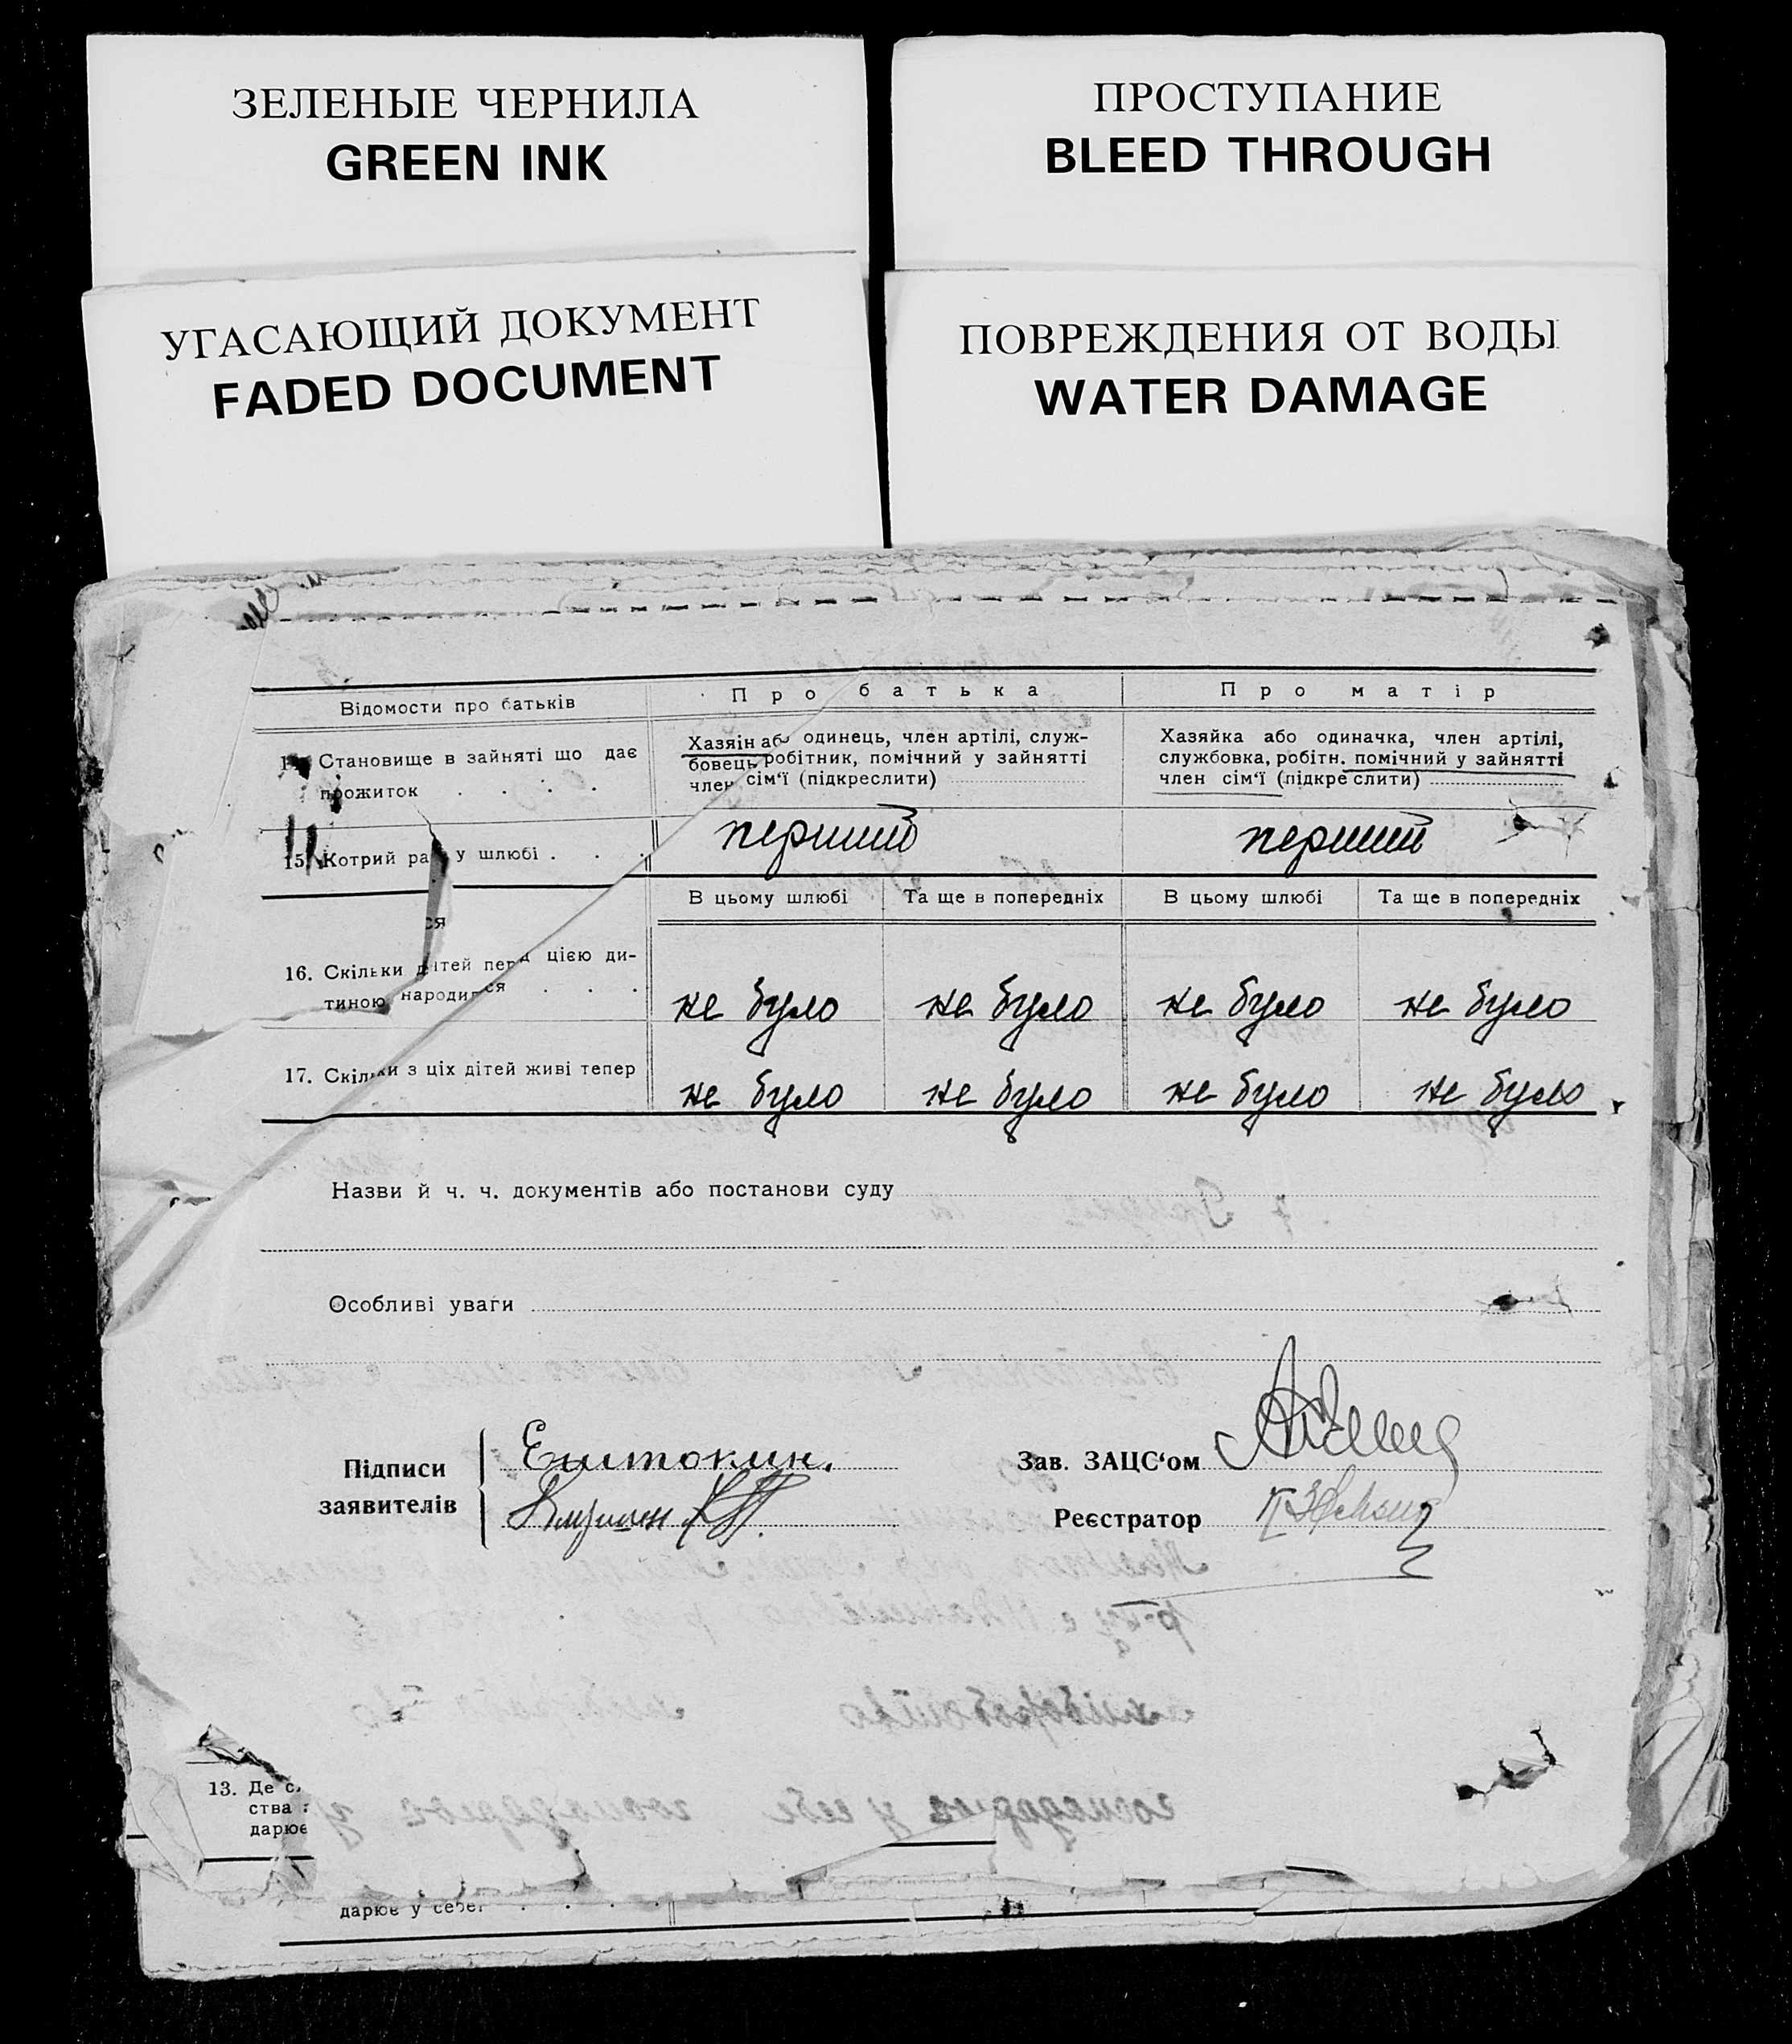 ЗЕЛЕНЫЕ ЧЕРНИЛА
GREEN INK
ПРОСТУПАНИЕ
BLEED THROUGH
УГАСАЮЩИЙ ДОКУМЕНТ
FADED DOCUMENT
ПОВРЕЖДЕНИЯ ОТ ВОДЫ
WATER DAMAGE
Відомости про батьків
Про батька
Про матір
Становище в зайняті що дає
прожиток . . . .
Хазяін або одинець, член артілі, служ-
бовець робітник, помічний у зайнятті
член сім‘ї (підкреслити)
Хазяйка або одиначка, член артілі,
службовка, робітн. помічний у зайнятті
член сім‘ї (підкреслити)
15. Котрий раз у шлюбі . . .
перший
перший
В цьому шлюбі
Та ще в попередніх
В цьому шлюбі
Та ще в попередніх
ся
16. Скільки дітей перед цією ди-
тиною народилося . . .
не було
не було
не було
не було
17. Скільки з ціх дітей живі тепер
не було
не було
не було
не було
Назви й ч. ч. документів або постанови суду
Особливі уваги
Підписи
заявителів
Зав. ЗАЦС‘ом
Реєстратор
13. Де
ства
дарює
дарює у себе